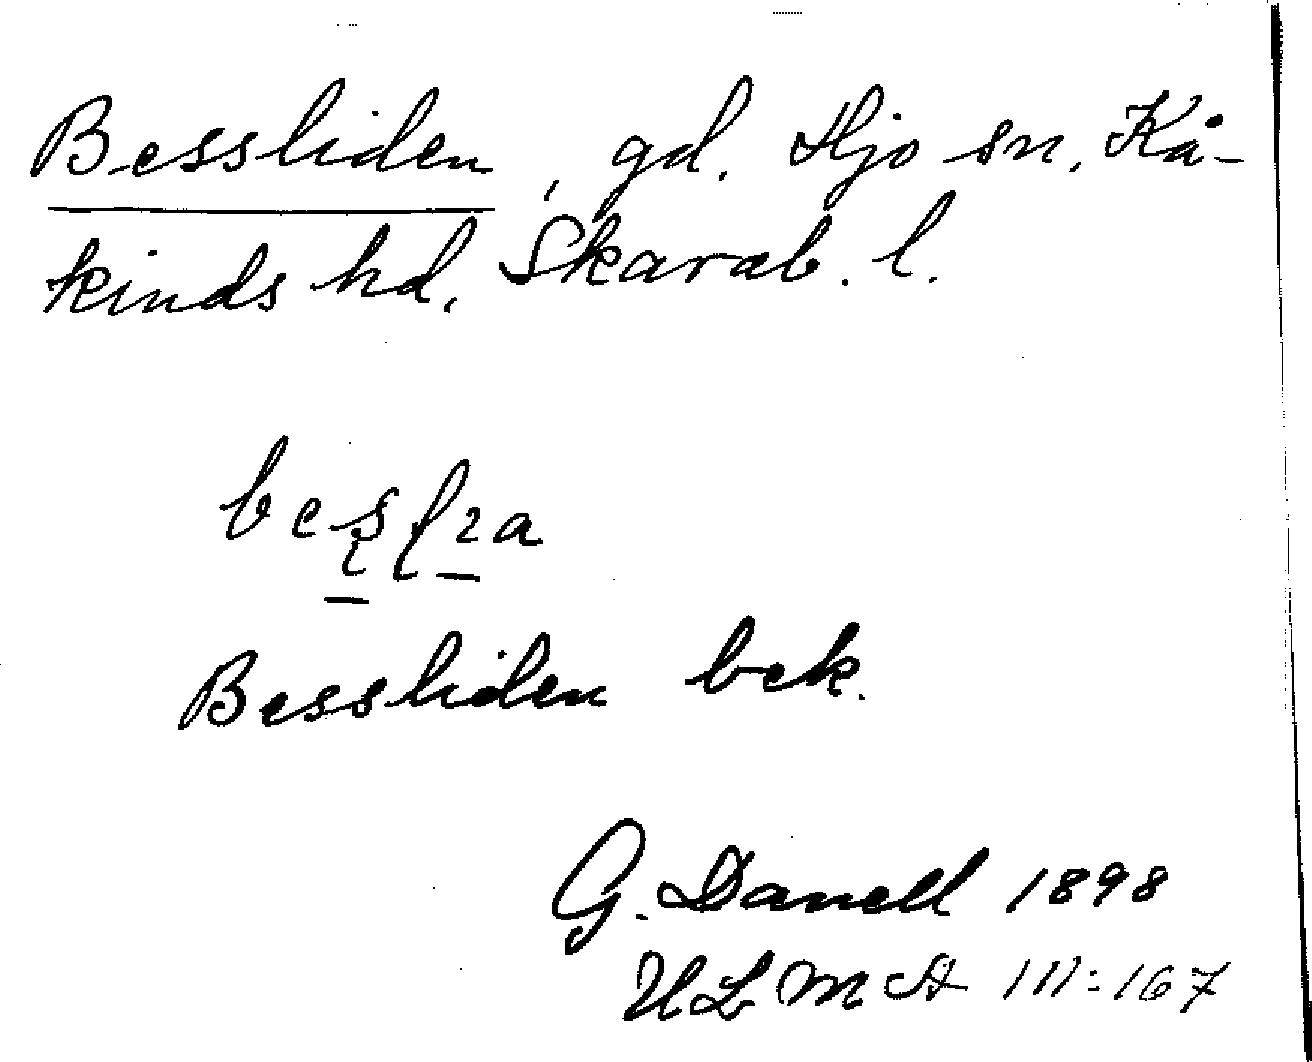 Bessliden, gd. Hjo sn. Kå-
kinds hd. Skarab. l.
Bessliden bek.
G. Danell 1898
ULMA III:167